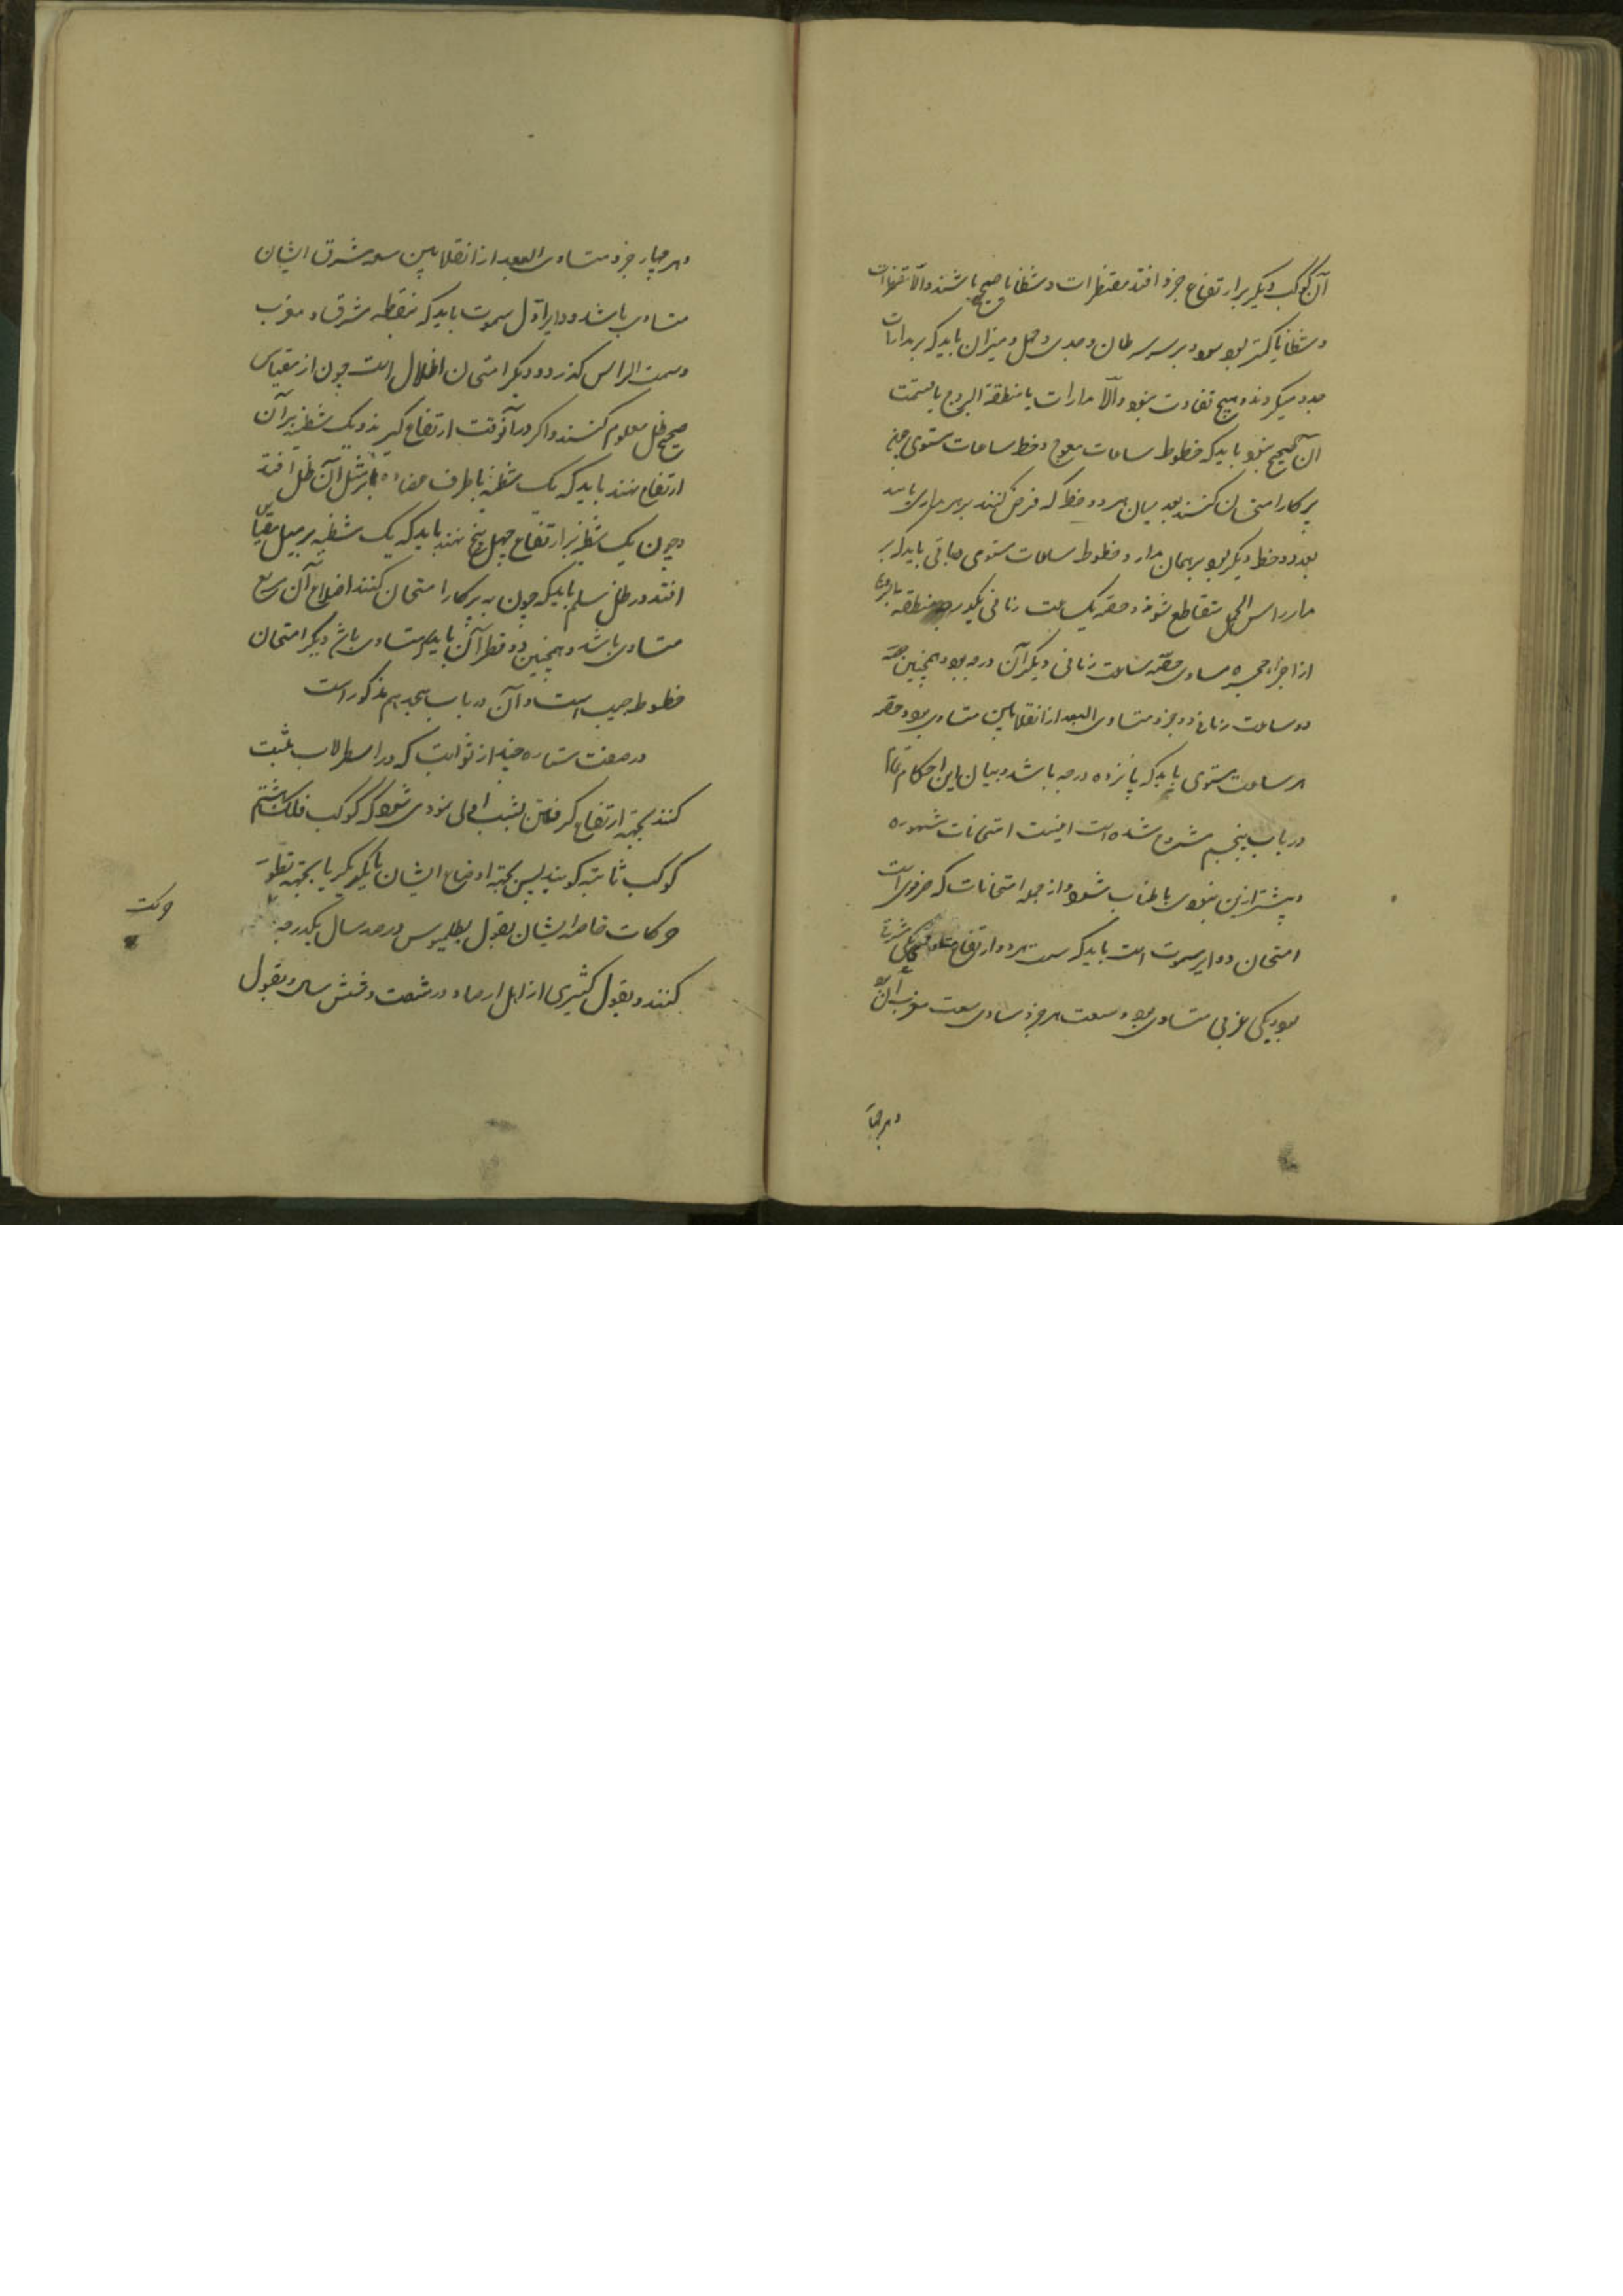 آن کوکب دیگر بر ارتفاع جزو افتد مقنطرات و شظایا صحیح باشند والا مقنطرات
و شظایا کمتر بود و بر سر سرطان و جدی و حمل و میزان باید که بر مدارات
میگردند و هیچ تفاوت نبود والا مدارات یا منطقة البروج یا قسمت
آن صحیح نبود باید که خطوط ساعات معوج و خط ساعات مستوی
پرکار امتحان کنند بعد میان هر دو خط که فرض کنند بر هر مداری باید
بعد دو خط دیگر بود بر همان مدار و خطوط ساعات مستوی باید که بر
مدار راس الحمل متقاطع شوند و حصه یک ساعت زمانی منطقه
از اجزاء حجره مساوی حصه ساعت زمانی دیگر آن درجه بود و همچنین حصه
دو ساعت زمانی دو جزو متساوی البعد از انقلابین متساوی بود و حصه
هر ساعت مستوی باید که پانزده درجه باشد و بیان این احکام
در باب پنجم مشروح شده است اینست امتحانات مشهوره
و بیشتر ازین باطناب شود و از جمله امتحانات که ضروری است
امتحان دوایر سموت است باید که سمت هر دو ارتفاع یکی شرقی
بود و یکی غربی متساوی بود و سعت هر جزو مساوی سعت مغرب آن بود
و هر چهار
و هر چهار جزو متساوی البعد از انقلابین سعه مشرق ایشان
متساوی باشد و دایره اول سموت باید که بنقطه مشرق و مغرب
و سمت الراس گذرد و دیگر امتحان اظلال است چون از مقیاس
صحیح ظل معلوم کنند و اگر در آنوقت ارتفاع گیرند و یک شظیه بر آن
ارتفاع نهند باید که یک شظیه با طرف بر مثل آن ظل افتد
و چون یک شظیه بر ارتفاع چهل پنج نهند باید که یک شظیه بر میل مقیاس
افتد در ظل سلم باید که چون به پرکار امتحان کنند اضلاع آن مربع
متساوی باشد و همچنین دو قطر آن باید که متساوی باشد دیگر امتحان
خطوط جیب است و آن در باب هجدهم مذکور است
در صفت ستاره چند از ثوابت که در اسطرلاب مثبت
کنند بجهته ارتفاع گرفتن بشب اولی نمودی شود که کوکب فلک هشتم
کوکب ثابته گویند پس بجهته اوضاع ایشان با یکدیگر یا بجهته
حرکات خاصه ایشان بقول بطلمیوس در صد سال یکدرجه
حرکت
کنند و بقول کثیری از اهل ارصاد در شصت و شش سال و بقول